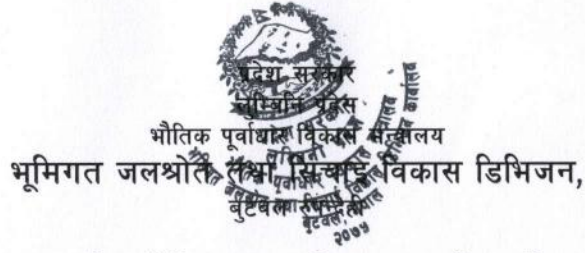 प्रदेश सरकार
लुम्बिनि प्रदेस
भौतिक पूर्वाधार विकास मन्त्रालय
भूमिगत जलश्रोत तथा सिचाइ विकास डिभिजन,
बुटवल रुपन्देही
बुटवल,
२०७५